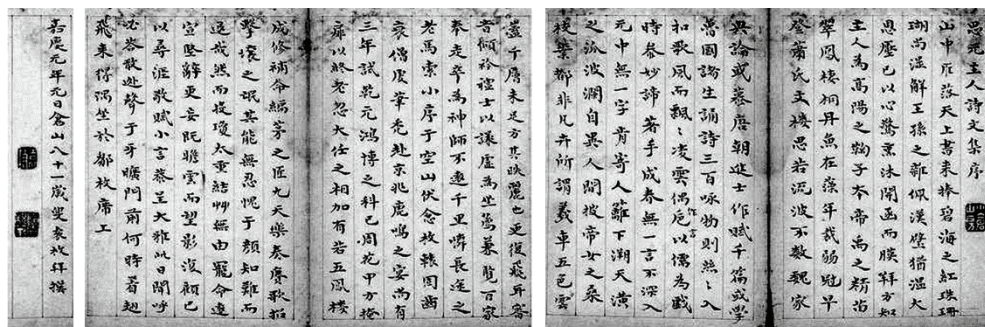 思元主人詩文集序
山中雁落天上書來捧碧海之紅珠珊
瑚尚溫解王孫之雜佩漢璧猶溫大
思塵已以心驚熏沐開函而拜方知
主人為高陽之子本帝禹之精苗
翠鳳棲桐丹魚在藻年裁弱冠早
登蕭氏文樓思若流波不數魏家
典論或慕唐朝進士作賦千篇或學
萬國諸生誦詩三百詠物則入
扣歌風而飄〻凌雲偶卮作言以儒為戲
時參妙諦著手成春無一言不深入
元中無一字肯寄人籬下溯天潢
之派波瀾自異人間披帝女之桑
都非凡卉所謂羲車五色雲
蓋千層未足方其跌麗也更復飛耳客
音傾衿禮士以謙虛為坐篤兼覽百家
奏走卒為神師不遠千里憐長途之
老馬索小序于空山伏念枚轅固齒
衰僧虔筆禿赴京兆鹿鳴之宴尚有
三年試乾元鴻博之科已周花甲方掩
扉以終老忍大任之相加有若五鳳樓
成修補命編茅之匠九天樂奏賡歌招
擊壤之氓其能無忍愧于顏知難而
退哉然而投瓊太重結艸無由寵命遠
宣堅辭更妄既瞻雲而望影復顧己
以尋涯敬賦小言恭呈大雅以日開呼
必答敢遜聲于牙曠門前何時看翅
飛來得偶坐於鄒枚席上
嘉慶元年元日倉山八十一歲叟袁枚拜撰